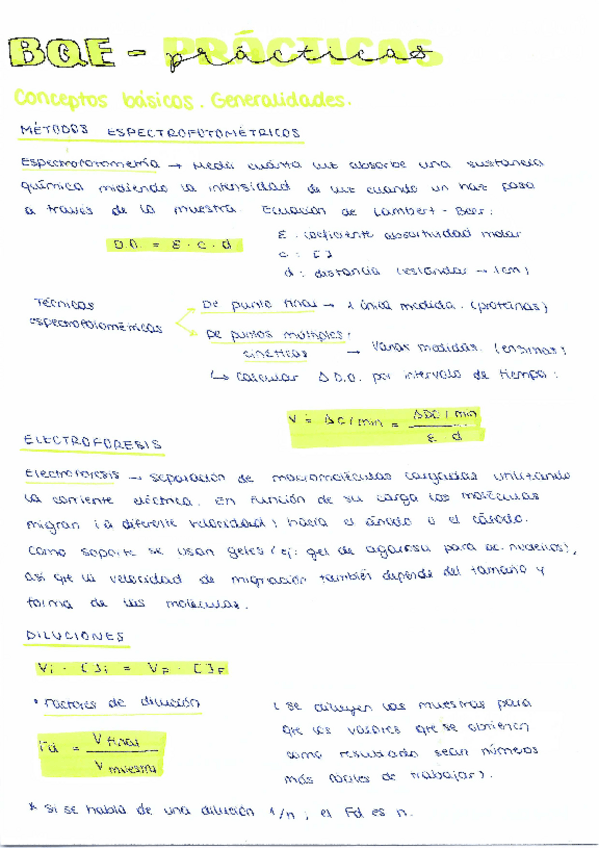 BQE - PRÁCTICAS
prácticas
Conceptos básicos. Generalidades.
MÉTODOS ESPECTROFOTOMÉTRICOS
Espectrofotometría → Medir cuánta luz absorbe una sustancia
química midiendo la intensidad de luz cuando un haz pasa
a través de la muestra. Ecuación de Lambert - Beer:
D.O. = ε · c · d
ε : coeficiente absortividad molar
c : [ ]
d : distancia (estándar → 1cm)
Técnicas
espectrofotométricas
De punto final → 1 única medida. (proteínas)
De puntos múltiples:
cinéticas → Varias medidas. (enzimas)
↳ Calcular Δ D.O. por intervalo de tiempo:
V = ΔC/min = ΔDO/min
ε · d
ELECTROFORESIS
Electroforesis → separación de macromoléculas cargadas utilizando
la corriente eléctrica. En función de su carga las moléculas
migran (a diferente velocidad) hacia el ánodo o el cátodo.
Como soporte se usan geles (ej: gel de agarosa para ác. nucleicos),
así que la velocidad de migración también depende del tamaño y
forma de las moléculas.
DILUCIONES
Vi · [ ]i = VF · [ ]F
• Factores de dilución
Fd = V final
V muestra
( se diluyen las muestras para
que los valores que se obtienen
como resultado sean números
más fáciles de trabajar).
* si se habla de una dilución 1/n, el Fd es n.